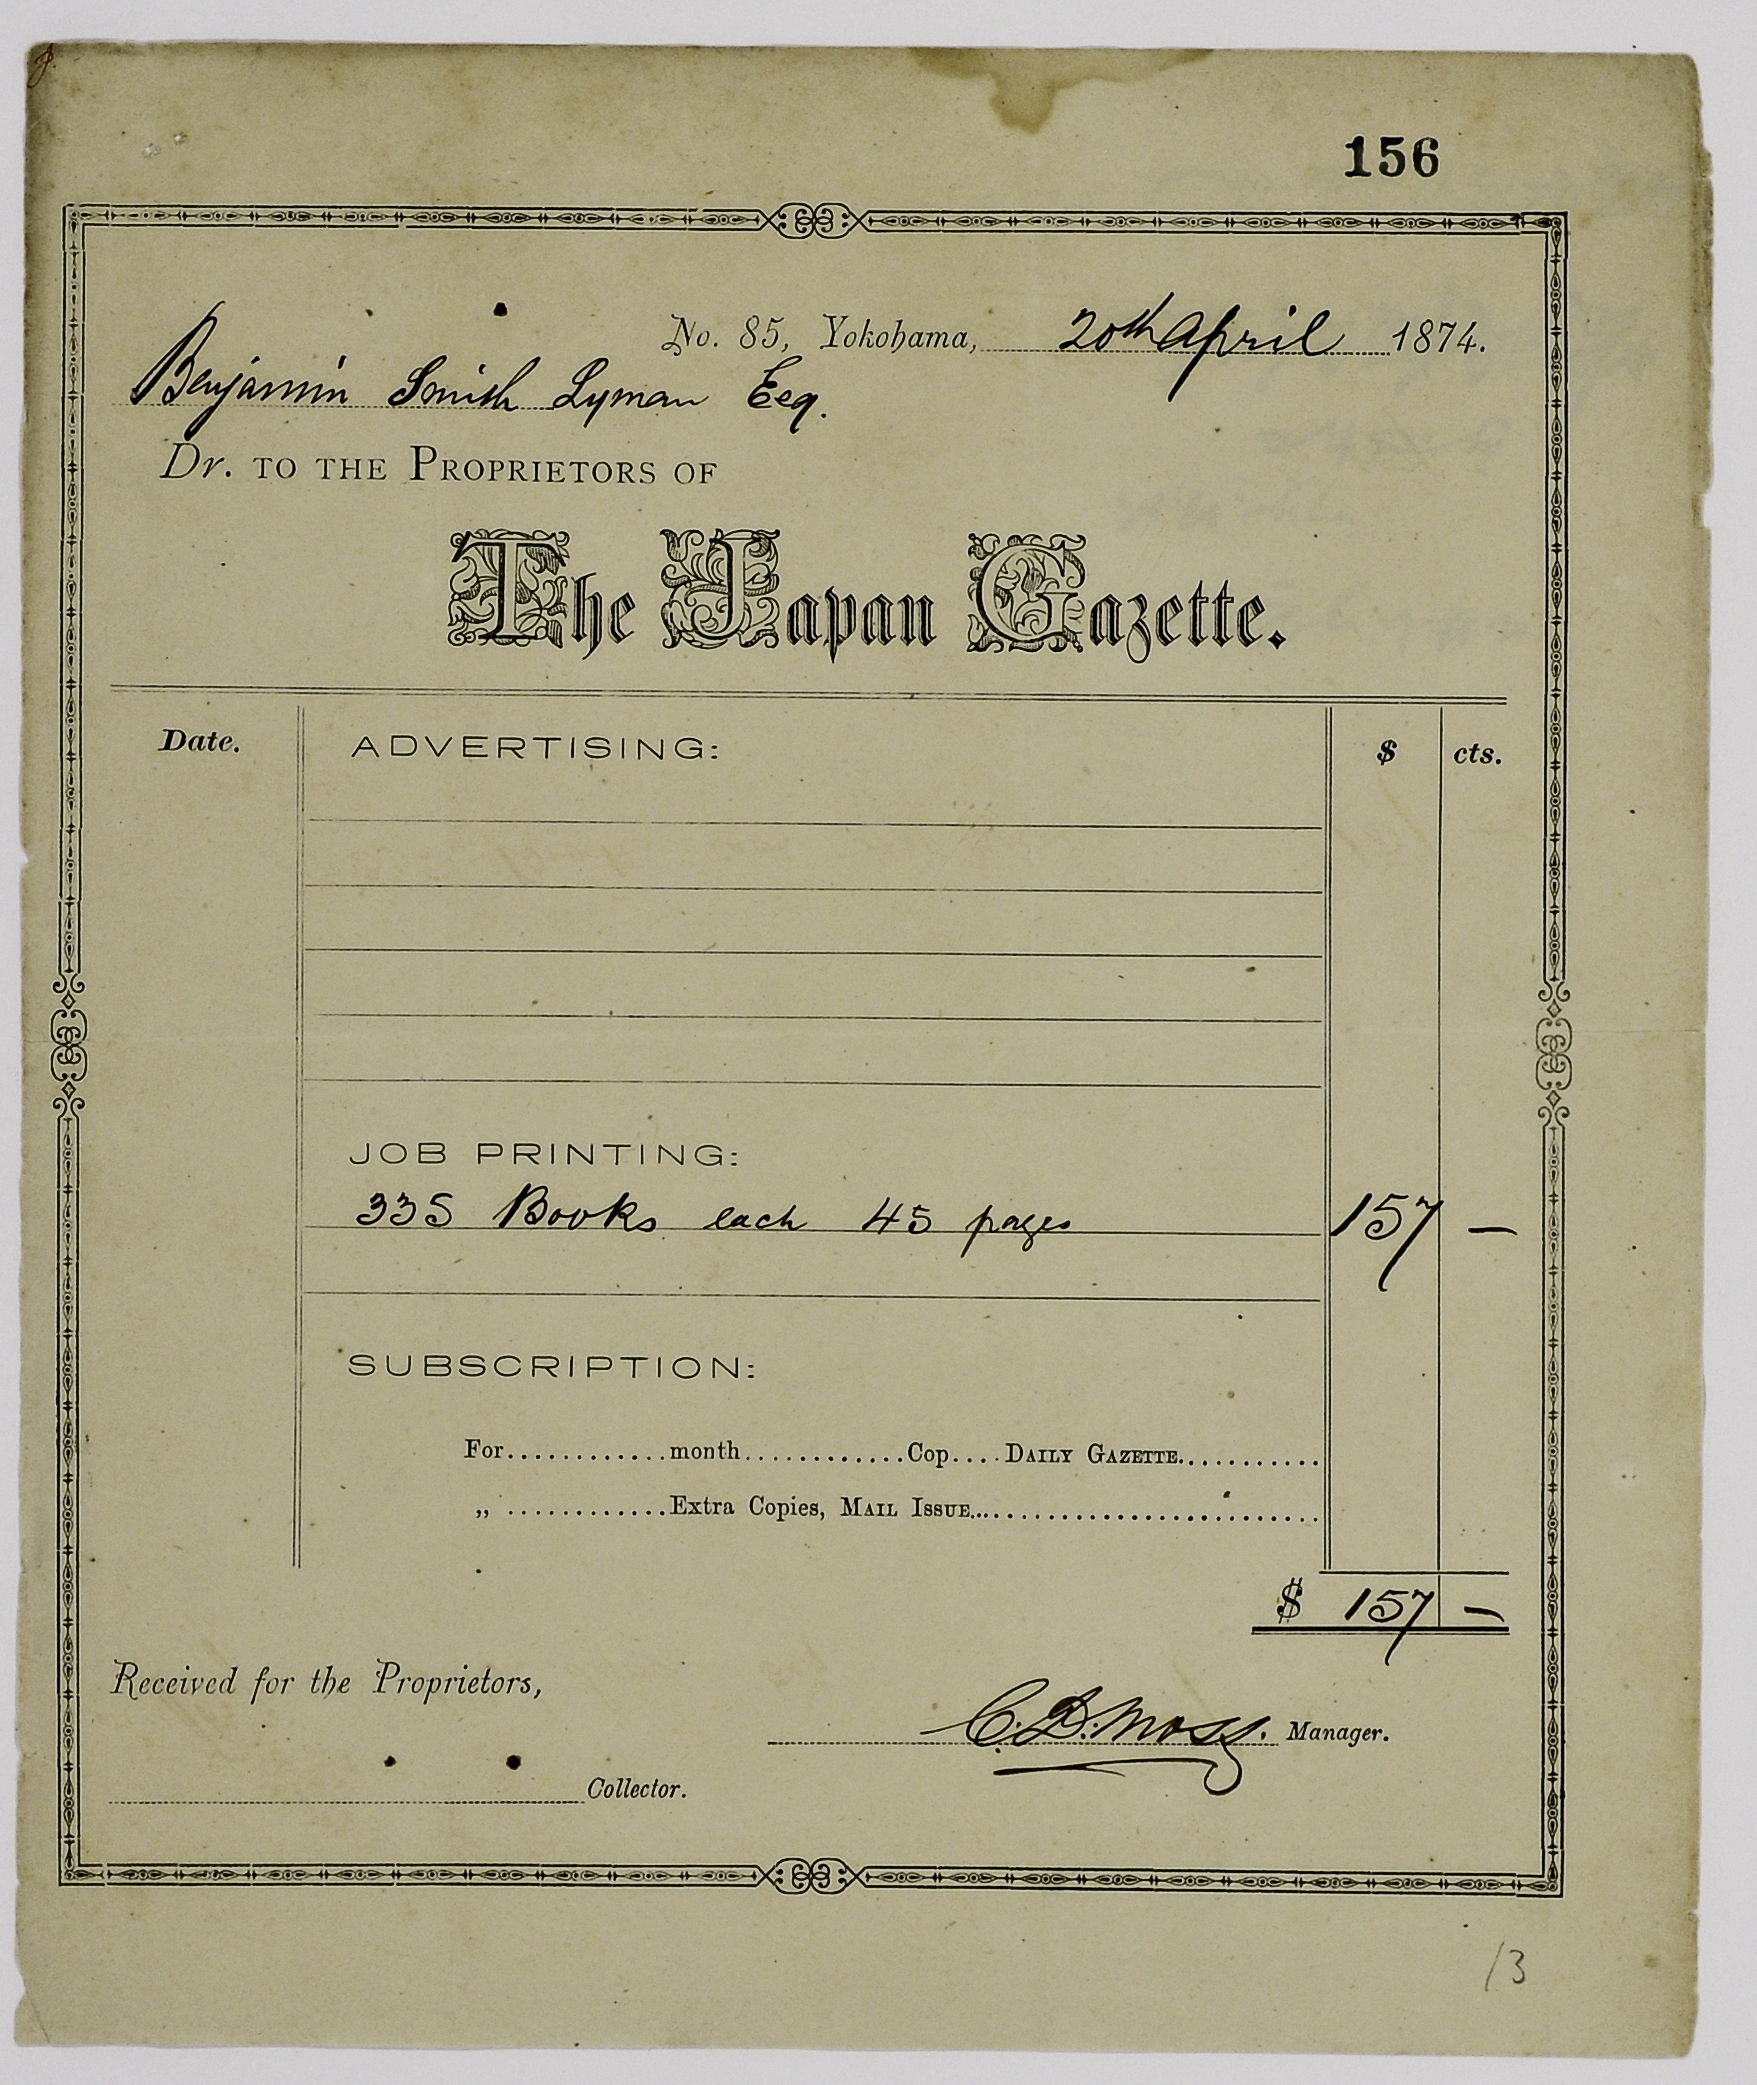 156
No. 85, Yokohama, 20th April 1874.
Benjamin Smith Lyman Esq.
Dr. TO THE PROPRIETORS OF
The Japan Gazette.
Date. ADVERTISING: $ cts.
JOB PRINTING:
335 Books each 45 pages 157 —
SUBSCRIPTION:
For............month............Cop....DAILY GAZETTE...........
„ ............Extra Copies, MAIL ISSUE............................
$ 157 —
Received for the Proprietors,
C. D. Moss. Manager.
Collector.
13